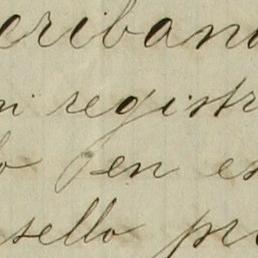 cribano
n registr
o en es
sello pr